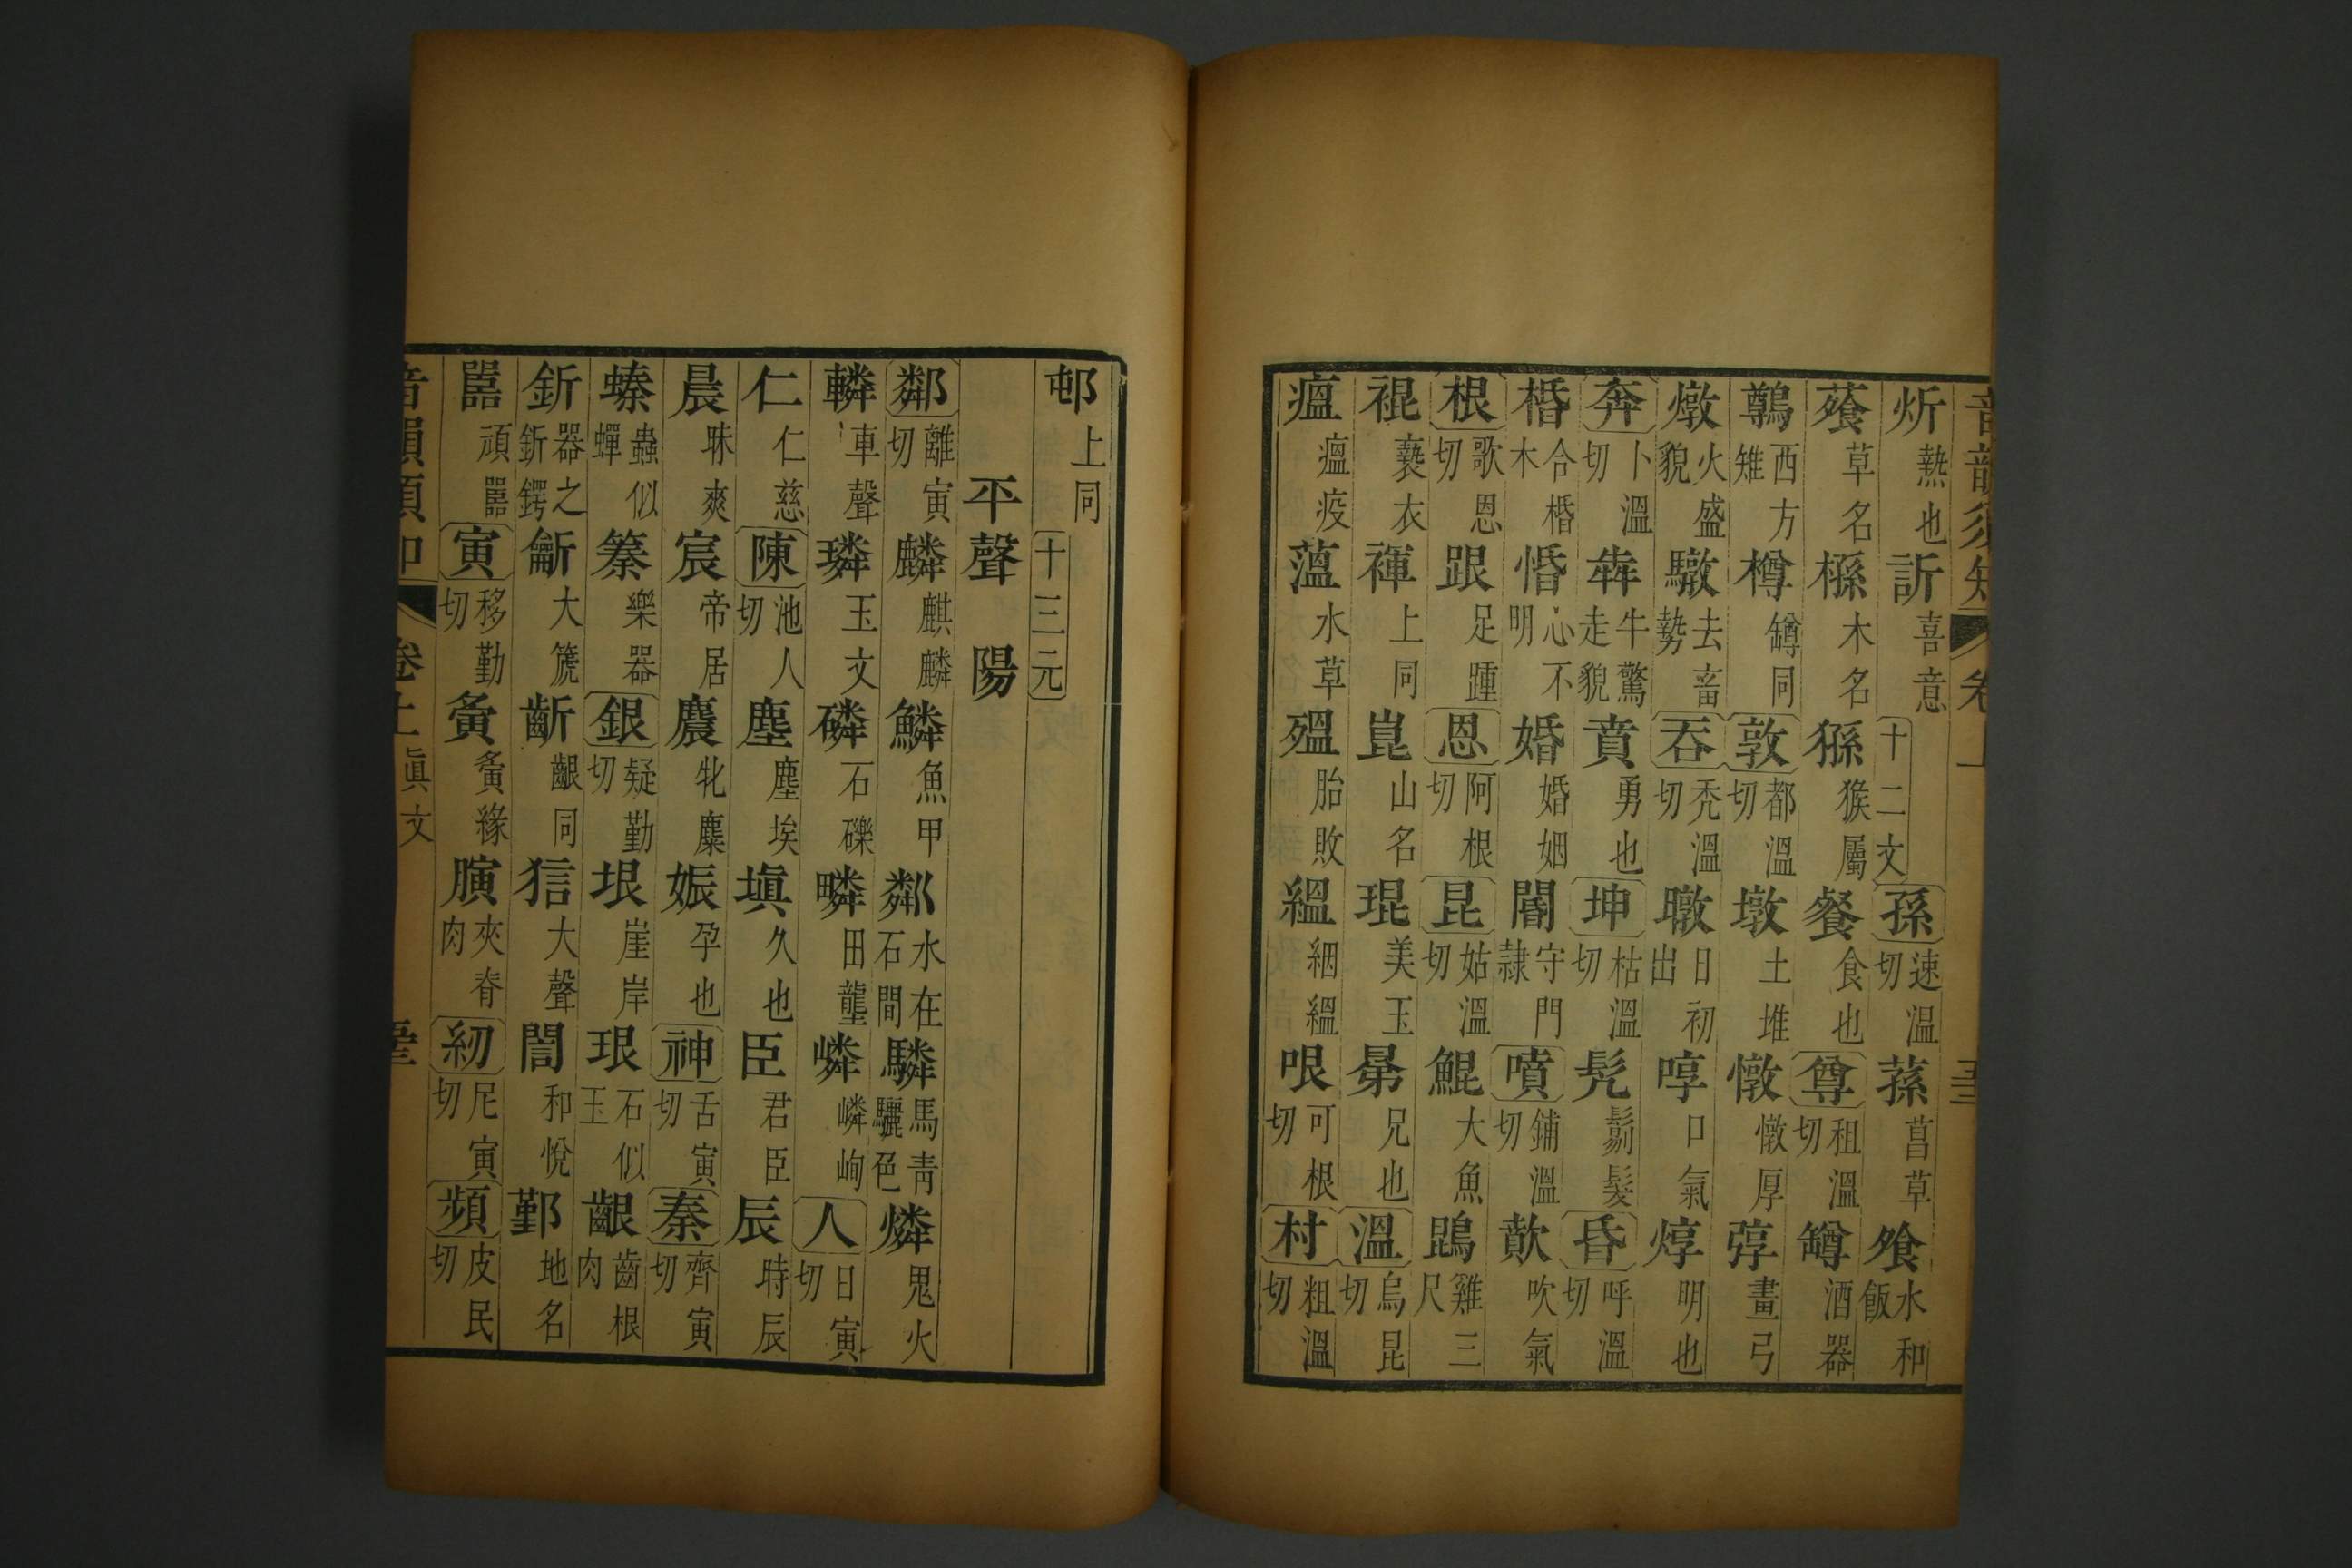 音韻須知 卷上
炘熱也訢喜意十二文孫速溫切蓀菖草飧水和飯
薞草名槂木名猻猴屬餐食也尊租溫切罇酒器
鷷西方雉樽罇同敦都溫切墩土堆憞憞厚弴畫弓
燉火盛貌驐去畜勢吞禿溫切暾日初出啍口氣焞明也
奔卜溫切犇牛驚走貌賁勇也坤枯溫切髡鬀髮昏呼溫切
棔合棔木惛心不明婚婚姻閽守門隸噴鋪溫切歕吹氣
根歌恩切跟足踵恩阿根切昆姑溫切鯤大魚鵾雞三尺
裩褻衣褌上同崑山名琨美玉晜兄也溫烏昆切
瘟瘟疫薀水草殟胎敗緼絪緼哏可根切村粗溫切
邨上同十三元
平聲 陽
鄰離寅切麟麒麟鱗魚甲粼水在石間驎馬青驪色燐鬼火
轔車聲璘玉文磷石礫疄田壟嶙嶙峋人日寅切
仁仁慈陳池人切塵塵埃塡久也臣君臣辰時辰
晨昧爽宸帝居麎牝麋娠孕也神舌寅切秦齊寅切
螓蟲似蟬𥴧樂器銀疑勤切垠崖岸珢石似玉齦齒根肉
釿器之釿鍔龂大箎齗齦同狺大聲誾和悅鄞地名
嚚頑嚚寅移勤切夤夤緣䐹夾脊肉紉尼寅切頻皮民切
音韻須知 卷上 眞文